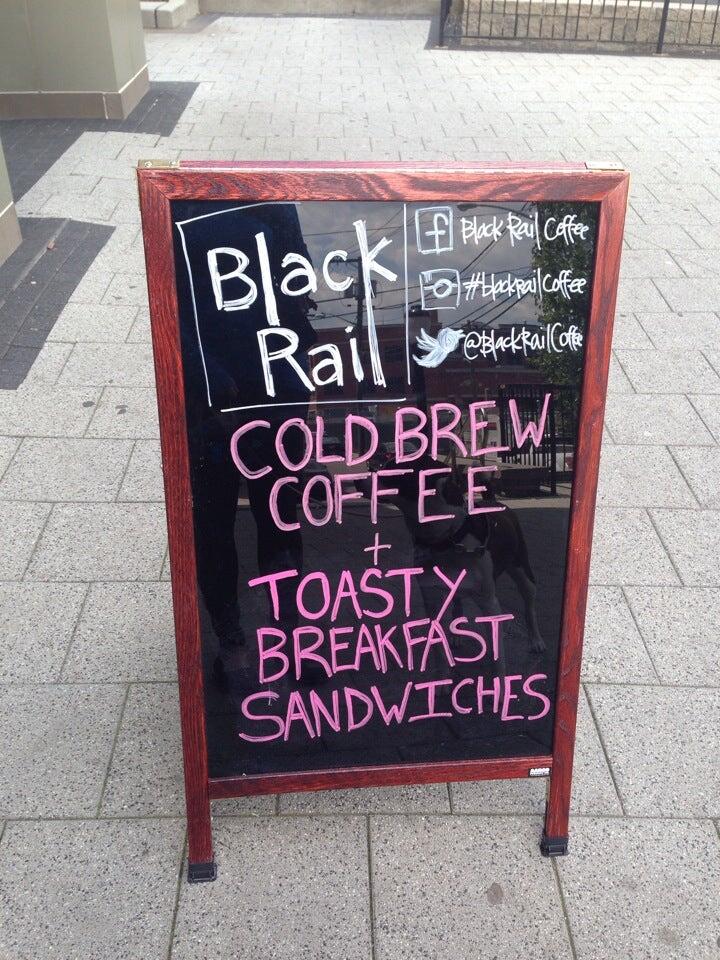 Black
Rail
f Black Rail Coffee
#blackrailCoffee
@BlackRailCoffee
COLD BREW
COFFEE
+
TOASTY
BREAKFAST
SANDWICHES